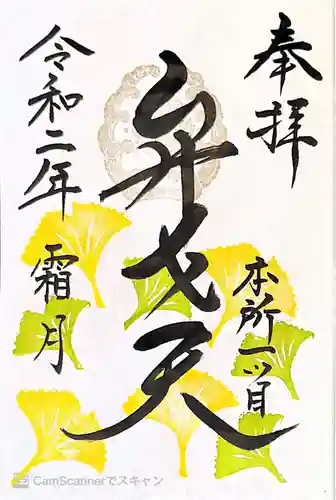 奉拝
本所一ッ目
弁才天
令和二年
霜月
CamScannerでスキャン